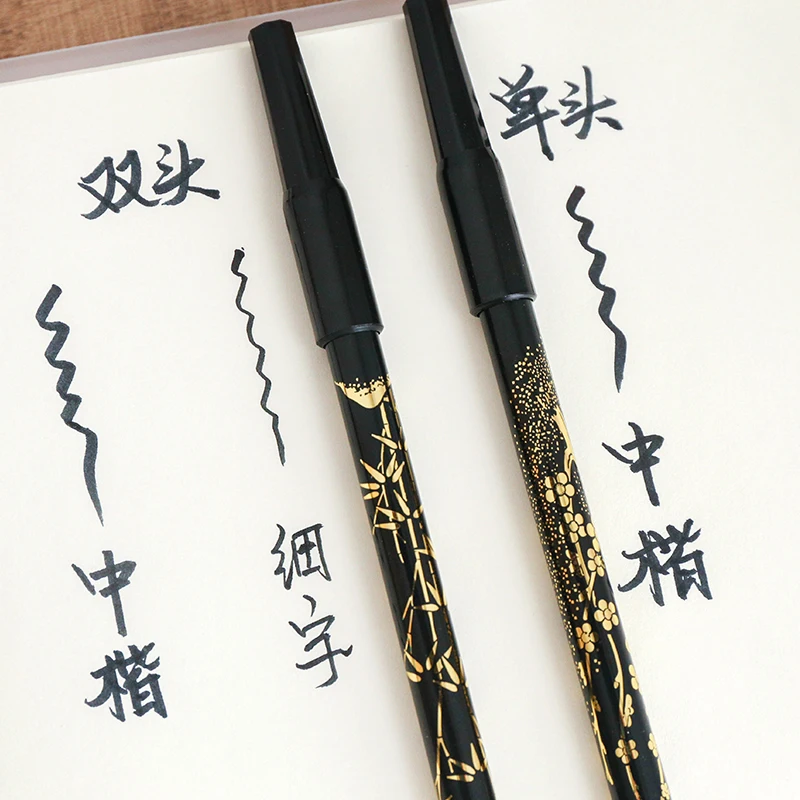 双头
中楷
细字
单头
中楷